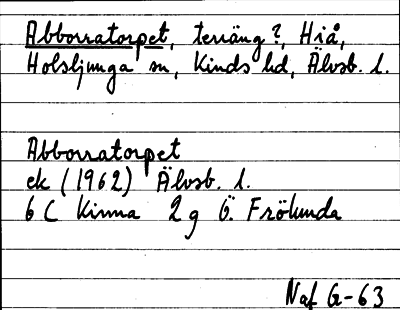 Abborratorpet, terräng?, Hiå,
Holsljunga sn, Kinds hd, Älvsb. l.
Abborratorpet
ek (1962) Älvsb. l.
6 C Kinna 2 g Ö. Frölunda
Naf G-63